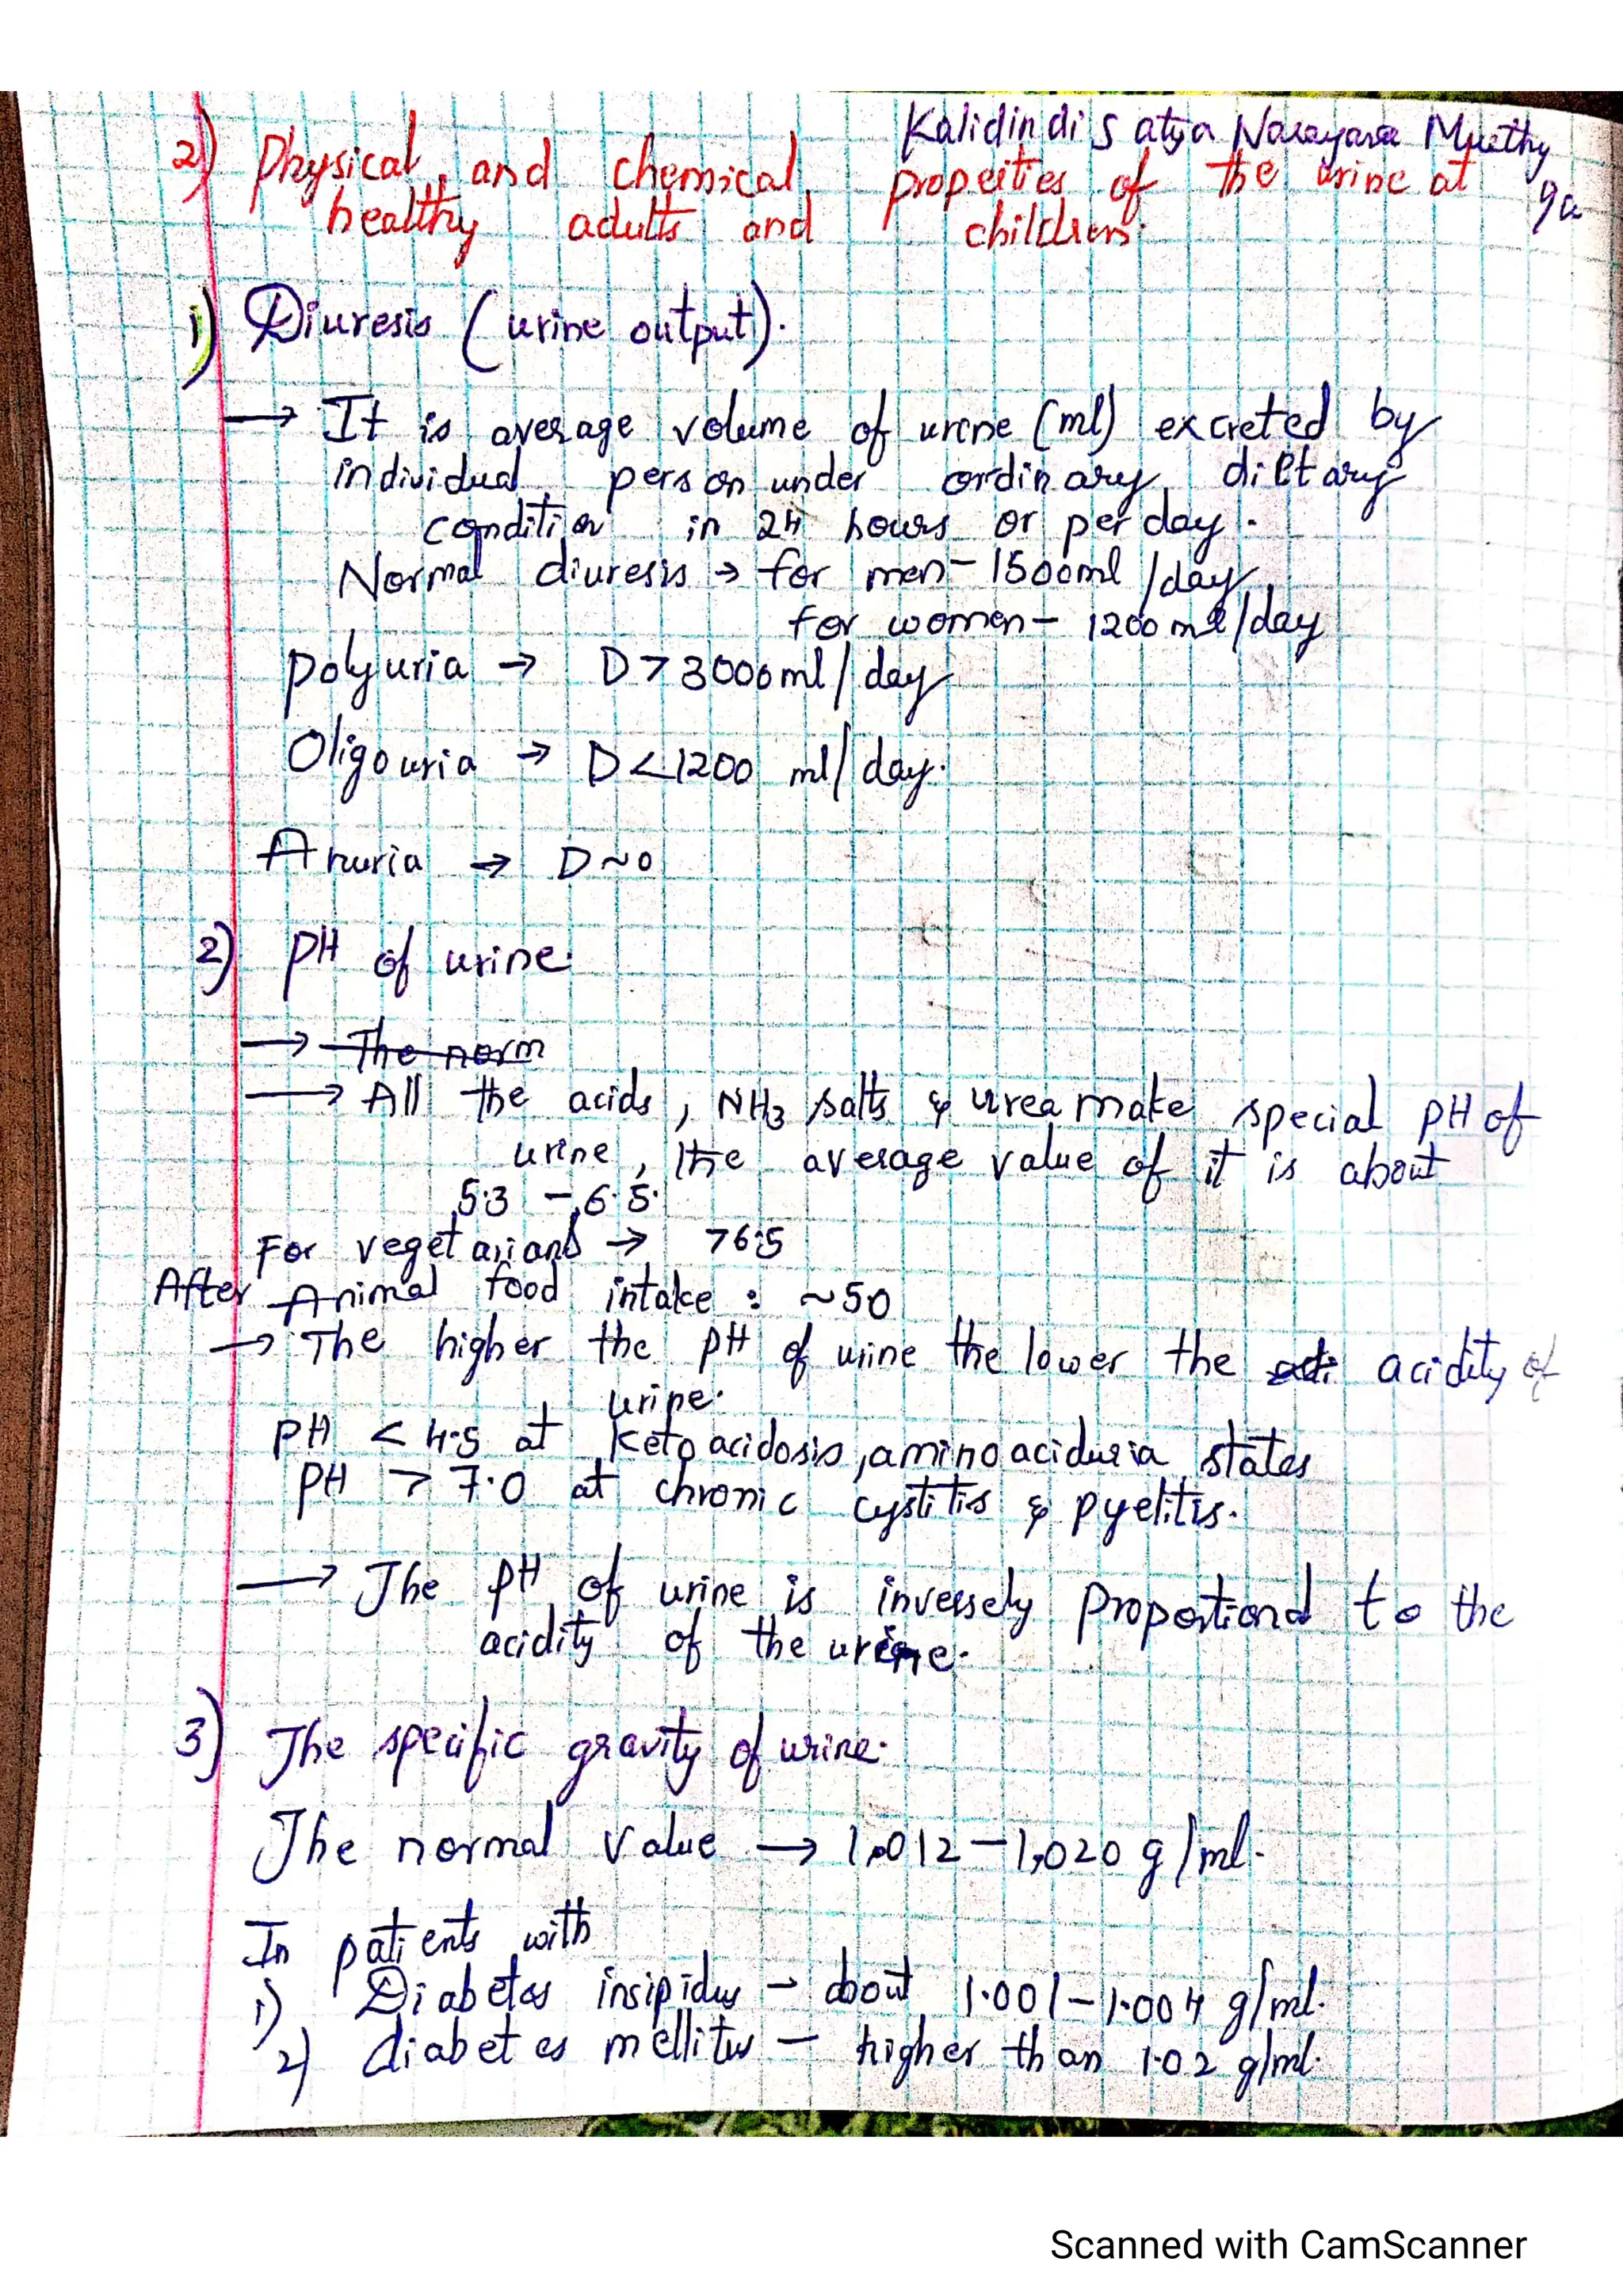 Kalidindi Satya Narayana Murthy
9a
2) Physical and chemical properties of the urine at
healthy adults and children.
1) Diuresis (urine output).
→ It is average volume of urine (ml) excreted by
individual person under ordinary diltary
condition in 24 hours or per day.
Normal diuresis → for men - 1500ml/day
for women - 1200 ml/day
polyuria → D > 3000ml/day
Oligouria → D < 1200 ml/day.
Anuria → D ~ 0
2) PH of urine.
→ The norm
→ All the acids, NH3 salts & urea make special PH of
urine, the average value of it is about
5.3 - 6.5.
For vegetarians → >6.5
After Animal food intake : ~50
→ The higher the PH of urine the lower the acidity of
urine.
PH < 4.5 at keto acidosis, amino aciduria states
PH > 7.0 at chronic cystitis & pyelitis.
→ The PH of urine is inversely proportional to the
acidity of the urine.
3) The specific gravity of urine.
The normal value → 1,012 - 1,020 g/ml.
In patients with
1) Diabetes insipidus - about 1.001 - 1.004 g/ml.
2) diabetes mellitus - higher than 1.02 g/ml.
Scanned with CamScanner